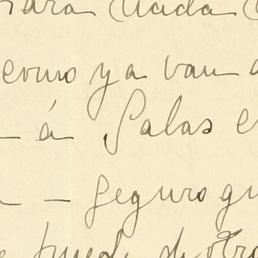 para nada
como ya van a
– á Salas e
– – seguro qu
e puede di otro